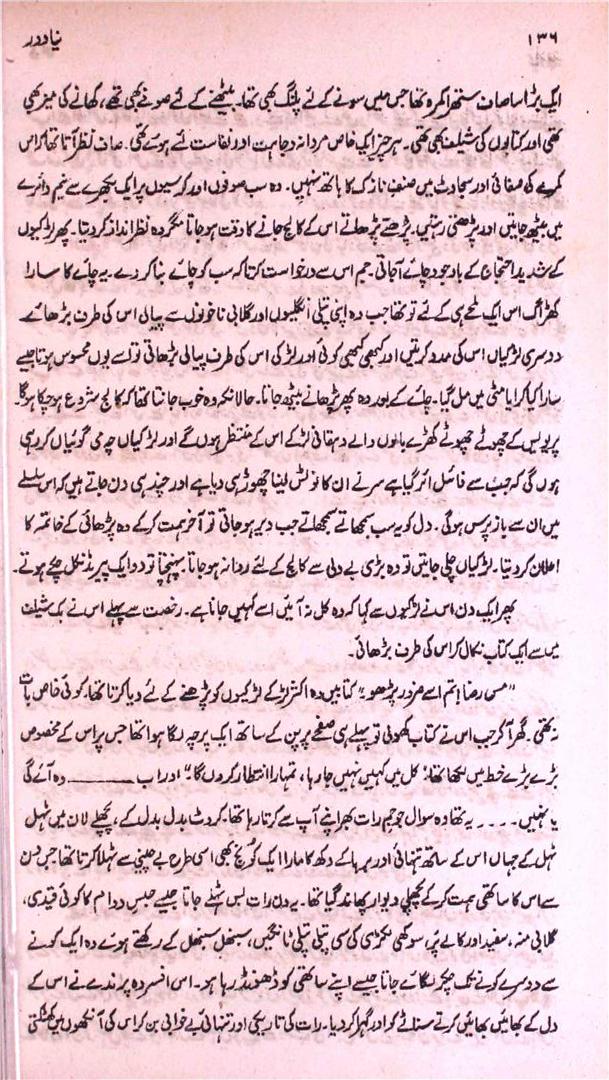 ۱۳۶
نیا دور
ایک بڑا سا صاف ستھرا کمرہ تھا جس میں سونے کے لئے پلنگ بھی تھا۔ بیٹھنے کے لئے صوفے بھی تھے، کھانے کی میز بھی
تھی اور کتابوں کی شیلف بھی تھی۔ ہر چیز ایک خاص مردانہ وجاہت اور نفاست لئے ہوئے تھی۔ صاف نظر آتا تھا کہ اس
کمرے کی صفائی اور سجاوٹ میں صنفِ نازک کا ہاتھ نہیں۔ وہ سب صوفوں اور کرسیوں پر ایک بکھرے سے نیم دائرے
میں بیٹھ جاتیں اور پڑھتی رہتیں۔ پڑھتے پڑھاتے اس کے کالج جانے کا وقت ہو جاتا مگر وہ نظر انداز کر دیتا۔ پھر لڑکیوں
کے شدید احتجاج کے باوجود چائے آجاتی۔ جم اس سے درخواست کرتا کہ سب کو چائے بنا کر دے۔ یہ چائے کا سارا
کھڑاگ اس ایک لمحے ہی کے لئے تو تھا جب وہ اپنی پتلی انگلیوں اور گلابی ناخونوں سے پیالی اس کی طرف بڑھائے
دوسری لڑکیاں اس کی مدد کرتیں اور کبھی کبھی کوئی اور لڑکی اس کی طرف پیالی بڑھاتی تو اسے یوں محسوس ہوتا جیسے
سارا کیا کرایا مٹی میں مل گیا۔ چائے کے بعد وہ پھر پڑھانے بیٹھ جاتا۔ حالانکہ وہ خوب جانتا تھا کہ کالج شروع ہو چکا ہوگا۔
پریویس کے چھوٹے چھوٹے کھڑے بالوں والے دہقانی لڑکے اس کے منتظر ہوں گے اور لڑکیاں چہ می گوئیاں کر رہی
ہوں گی کہ جب سے فائنل ائر گیا ہے سر نے ان کا نوٹس لینا چھوڑ ہی دیا ہے اور چند ہی دن جاتے ہیں کہ اس سلسلے
میں ان سے باز پرس ہوگی۔ دل کو یہ سب سمجھاتے سمجھاتے جب دیر ہو جاتی تو آخر ہمت کر کے وہ پڑھائی کے خاتمہ کا
اعلان کر دیتا۔ لڑکیاں چلی جاتیں تو وہ بڑی بے دلی سے کالج کے لئے روانہ ہو جاتا پہنچتا تو دو ایک پیریڈ نکل چکے ہوتے۔
پھر ایک دن اس نے لڑکیوں سے کہا کہ وہ کل نہ آئیں اسے کہیں جانا ہے۔ رخصت سے پہلے اس نے بک شیلف
میں سے ایک کتاب نکال کر اس کی طرف بڑھائی۔
”مس رضا! تم اسے ضرور پڑھو“ کتابیں وہ اکثر لڑکے لڑکیوں کو پڑھنے کے لئے دیا کرتا تھا۔ کوئی خاص بات
نہ تھی۔ گھر آکر جب اس نے کتاب کھولی تو پہلے ہی صفحے پر پن کے ساتھ ایک پرچہ لگا ہوا تھا جس پر اس کے مخصوص
بڑے بڑے خط میں لکھا تھا: ”کل میں کہیں نہیں جا رہا، تمہارا انتظار کروں گا۔“ اور اب ——— وہ آئے گی
یا نہیں۔۔۔۔ یہ تھا وہ سوال جو جم رات بھر اپنے آپ سے کرتا رہا تھا۔ کروٹ بدل بدل کے، پچھلے لان میں ٹہل
ٹہل کے جہاں اس کے ساتھ تنہائی اور برہا کے دکھ کا مارا ایک کونج بھی اسی طرح بے چینی سے ٹہلا کرتا تھا جس دن
سے اس کا ساتھی ہمت کر کے پچھلی دیوار پھاند گیا تھا۔ یہ دن رات بس ٹہلے جاتا جیسے حبسِ دوام کا کوئی قیدی،
گلابی منہ، سفید اور کالے پر، سوکھی لکڑی کی سی پتلی پتلی ٹانگیں، سنبھل سنبھل کے رکھتے ہوئے وہ ایک کونے
سے دوسرے کونے تک چکر لگائے جاتا جیسے اپنے ساتھی کو ڈھونڈ رہا ہو۔ اس افسردہ پرندے نے اس کے
دل کے بھائیں بھائیں کرتے سناٹے کو اور گہرا کر دیا۔ رات کی تاریکی اور تنہائی بے خوابی بن کر اس کی آنکھوں میں کھٹکتی